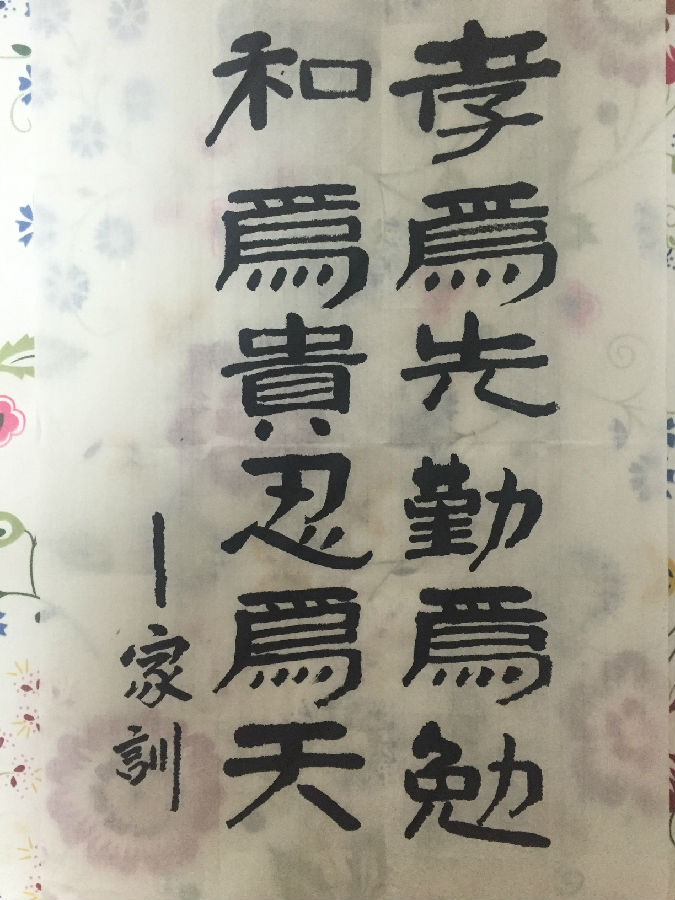 孝爲先勤爲勉
和爲貴忍爲天
—家訓